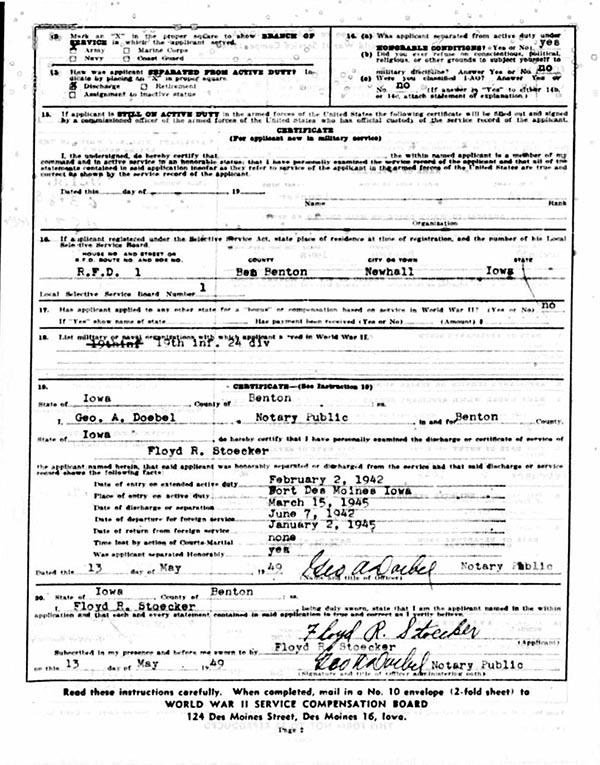 12. Mark an "X" in the proper square to show BRANCH OF
SERVICE in which the applicant served.
Army □ Marine Corps
□ Navy □ Coast Guard
13. How was applicant SEPARATED FROM ACTIVE DUTY? In-
dicate by placing "X" in proper square.
Discharge □ Retirement
□ Assignment to inactive status
14. (a) Was applicant separated from active duty under
HONORABLE CONDITIONS? (Yes or No) yes
(b) Did you ever refuse on conscientious, political,
religious, or other grounds to subject yourself to
military discipline? Answer Yes or No. no
(c) Were you classified 1-AO? Answer Yes or
No. no (If answer is "Yes" to either 14b,
or 14c, attach statement of explanation.)
15. If applicant is STILL ON ACTIVE DUTY in the armed forces of the United States the following certificate will be filled out and signed
by a commissioned officer of the armed forces of the United States who has official custody of the service record of the applicant.
CERTIFICATE
(For applicant now in military service)
I, the undersigned, do hereby certify that , the within named applicant is a member of my
command and in active service in an honorable status; that I have personally examined the service record of the applicant and that all of the
statements contained in said application insofar as they refer to service of the applicant in the armed forces of the United States are true and
correct as shown by the service record of the applicant.
Dated this day of , 19
Name Rank
Organization
16. If applicant registered under the Selective Service Act, state place of residence at time of registration, and the number of his Local
Selective Service Board.
HOUSE NO. AND STREET OR
R.F.D. ROUTE NO. AND BOX NO. COUNTY CITY OR TOWN STATE
R.F.D. 1 Ben Benton Newhall Iowa
Local Selective Service Board Number 1
17. Has applicant applied to any other state for a "bonus" or compensation based on service in World War II? (Yes or No) no
If "Yes" show name of state Has payment been received (Yes or No) (Amount) $
18. List military or naval organizations with which applicant served in World War II.
19thinf 19th inf. 24 div
19. CERTIFICATE—(See Instruction 19)
State of Iowa County of Benton : ss.
I, Geo. A. Doebel a Notary Public in and for Benton County,
State of Iowa, do hereby certify that I have personally examined the discharge or certificate of service of
Floyd R. Stoecker
the applicant named herein, that said applicant was honorably separated or discharged from the service and that said discharge or service
record shows the following facts:
Date of entry on extended active duty February 2, 1942
Place of entry on active duty Fort Des Moines Iowa
Date of discharge or separation March 15, 1945
Date of departure for foreign service June 7, 1942
Date of return from foreign service January 2, 1945
Time lost by action of Courts-Martial none
Was applicant separated Honorably yes
Dated this 13 day of May 1949 Geo A Doebel Notary Public
(Name and title of Officer)
20. State of Iowa County of Benton : ss.
I, Floyd R. Stoecker being duly sworn, state that I am the applicant named in the within
application and that each and every statement contained in said application is true and correct as I verily believe.
Floyd R. Stoecker
Subscribed in my presence and before me sworn to by Floyd R. Stoecker (Applicant)
on this 13 day of May 1949 Geo A Doebel Notary Public
(Signature and title of officer administering oath)
Read these instructions carefully. When completed, mail in a No. 10 envelope (2-fold sheet) to
WORLD WAR II SERVICE COMPENSATION BOARD
124 Des Moines Street, Des Moines 16, Iowa.
Page 2